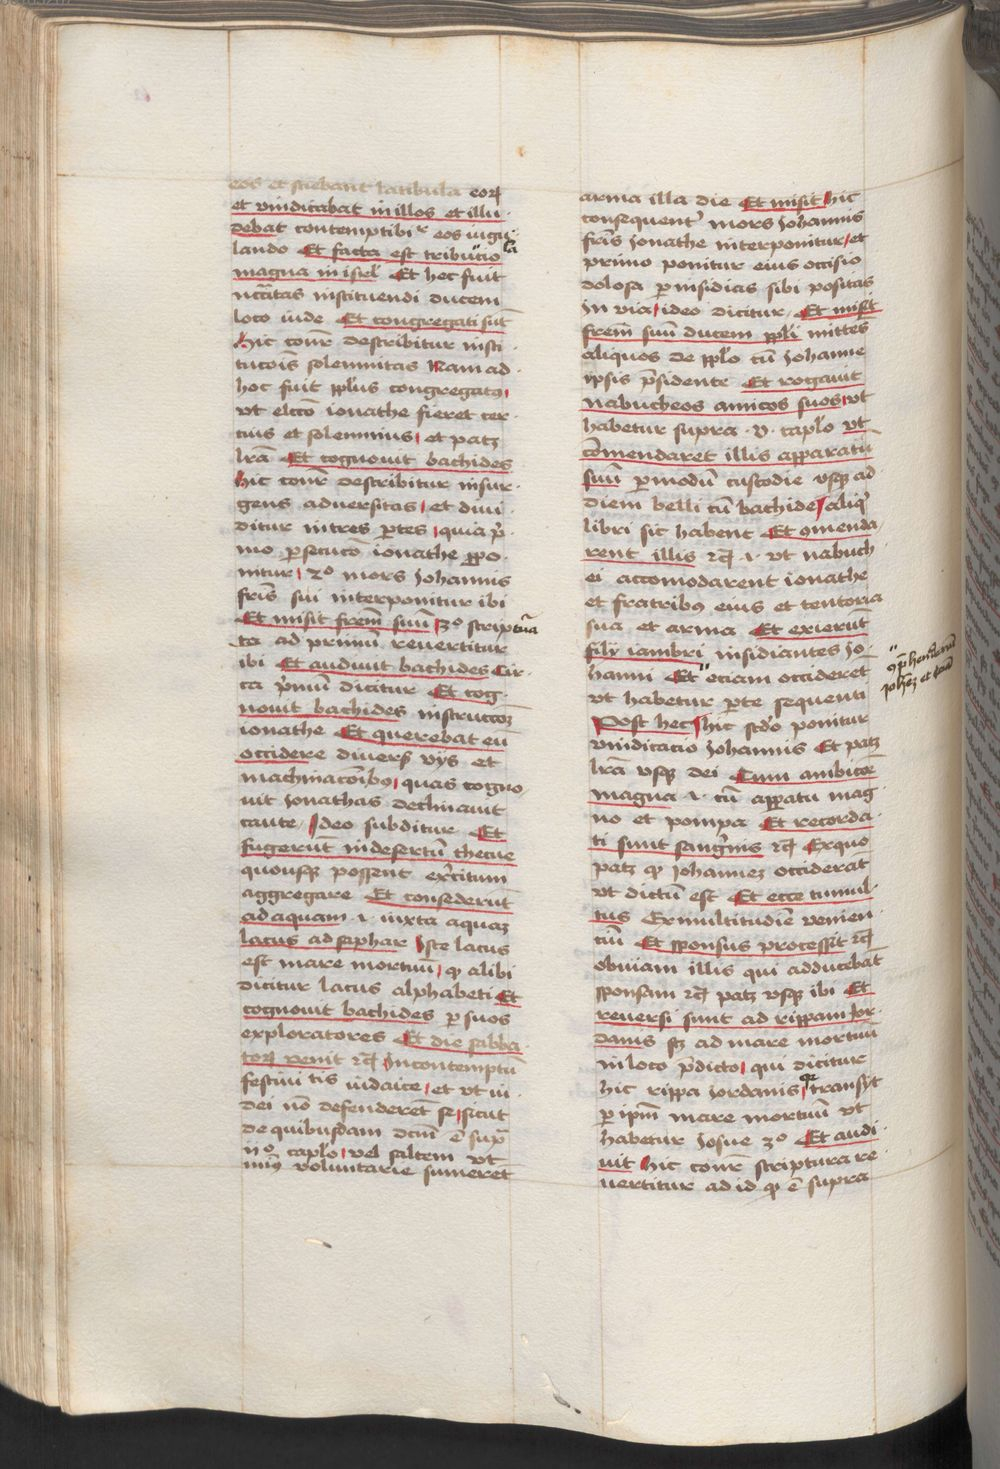 eos et sciebant latibula eorꝝ
et vindicabat in illos et illu
debat contemptibiᷣ eos iugu
lando Et facta est tribulatio
magna in isrl̅ Et hec fuit
nc̅c̅itas instituendi ducem
loco iude Et congregati su̅t
Hic conr̅ describitur insti
tuco̅is solemnitas Nam ad
hoc fuit ppl̅us congregatꝯ
vt elcc̅o ionathe fieret cer
cius et solemnius et patꝫ
lr̅a Et cognouit bachides
Hic conr̅ describitur insur
gens aduersitas et diui
ditur in tres ꝑtes quia p̅
mo ꝑsecuco̅ ionathe ꝓpo
nitur 2º mors Johannis
fr̅is sui interponitur ibi
Et misit frem̅ suu̅ 3º scriptu̅a
ta ad primu̅ reuertitur
ibi Et audiuit bachides Cir
ca p̅mu̅ dicitur Et cog
nouit bachides instruccoꝫ
ionathe Et querebat eu̅
occidere diuers̅ vijs et
machinaco̅ibꝯ quas cogno
uit Jonathas declinauit
caute Ideo subditur Et
fugeru̅t in desertu̅ thecue
quousqꝫ possent ex̅citum
aggregare Et consederu̅t
ad aquam .i. iuxta aquaꝫ
lacus ad saphar Iste lacus
est mare mortuu̅ qꝫ alibi
dicitur lacus alphabeti Et
cognouit bachides ꝑ suos
exploratores Et die sabba
torꝝ venit rc̅ In contemptu̅
festiui tis iudaice et vt iu
dei no̅ defenderent̅ se sicut
de quibusdam dc̅m e̅ sup̅
iiº capl̅o vel saltem vt
min̅ voluntarie sumeret
arma illa die Et misit Hic
consequent̉ mors Johannis
fr̅is Jonathe interponitur et
primo ponitur eius occisio
dolosa ꝑ insidias sibi positas
In via ideo dicitur Et misit
frem̅ suu̅ ducem ppl̅i mittens̅
aliquos de ppl̅o cu̅ Johanne
ipsis p̅sidente Et rogauit
nabutheos amicos suos vt
habetur supra .v. caplo̅ vt
co̅mendaret illis apparatu̅
suu̅ ꝑ modu̅ custodie vsqꝫ ad
diem belli cu̅ bachide aliq̉
libri sic habent Et ꝯmenda
rent illis rc̅ .i. vt nabuth
ei accomodarent ionathe
et fratribꝯ eius et tentoria
sua et arma Et exieru̅t
filij iambri insidiantes Jo
hanni Et " etiam occideret̅
" ꝯp̅henderunt
Joh̅eꝫ et
vt habetur ꝑte sequenti
Post hec hic scdo̅ ponitur
vindicacio Johannis Et patꝫ
lr̅a vsqꝫ dei Cum ambicoe̅
magna .i. cu̅ apparatu mag
no et pompa Et recorda
ti sunt sangui̅nis rc̅ Ex quo
patꝫ qꝫ Johannez occiderat̅
vt dictu̅ est Et ecce tumul
tus Ex multitudie̅ venien
ciu̅ Et sponsus processit rc̅
obuiam illis qui adducebat̅
sponsam rc̅ patꝫ vsqꝫ ibi Et
reuersi sunt ad rippam Jor
danis sꝫ ad mare mortuu̅
in loco p̅dicto qui dicitur
hic rippa Jordanis transijt
ꝑ ipm̅ mare mortuu̅ vt
habetur Josue 3º Et audi
uit Hic conr̅ scriptura re
uertitur ad id qꝫ e̅ supra